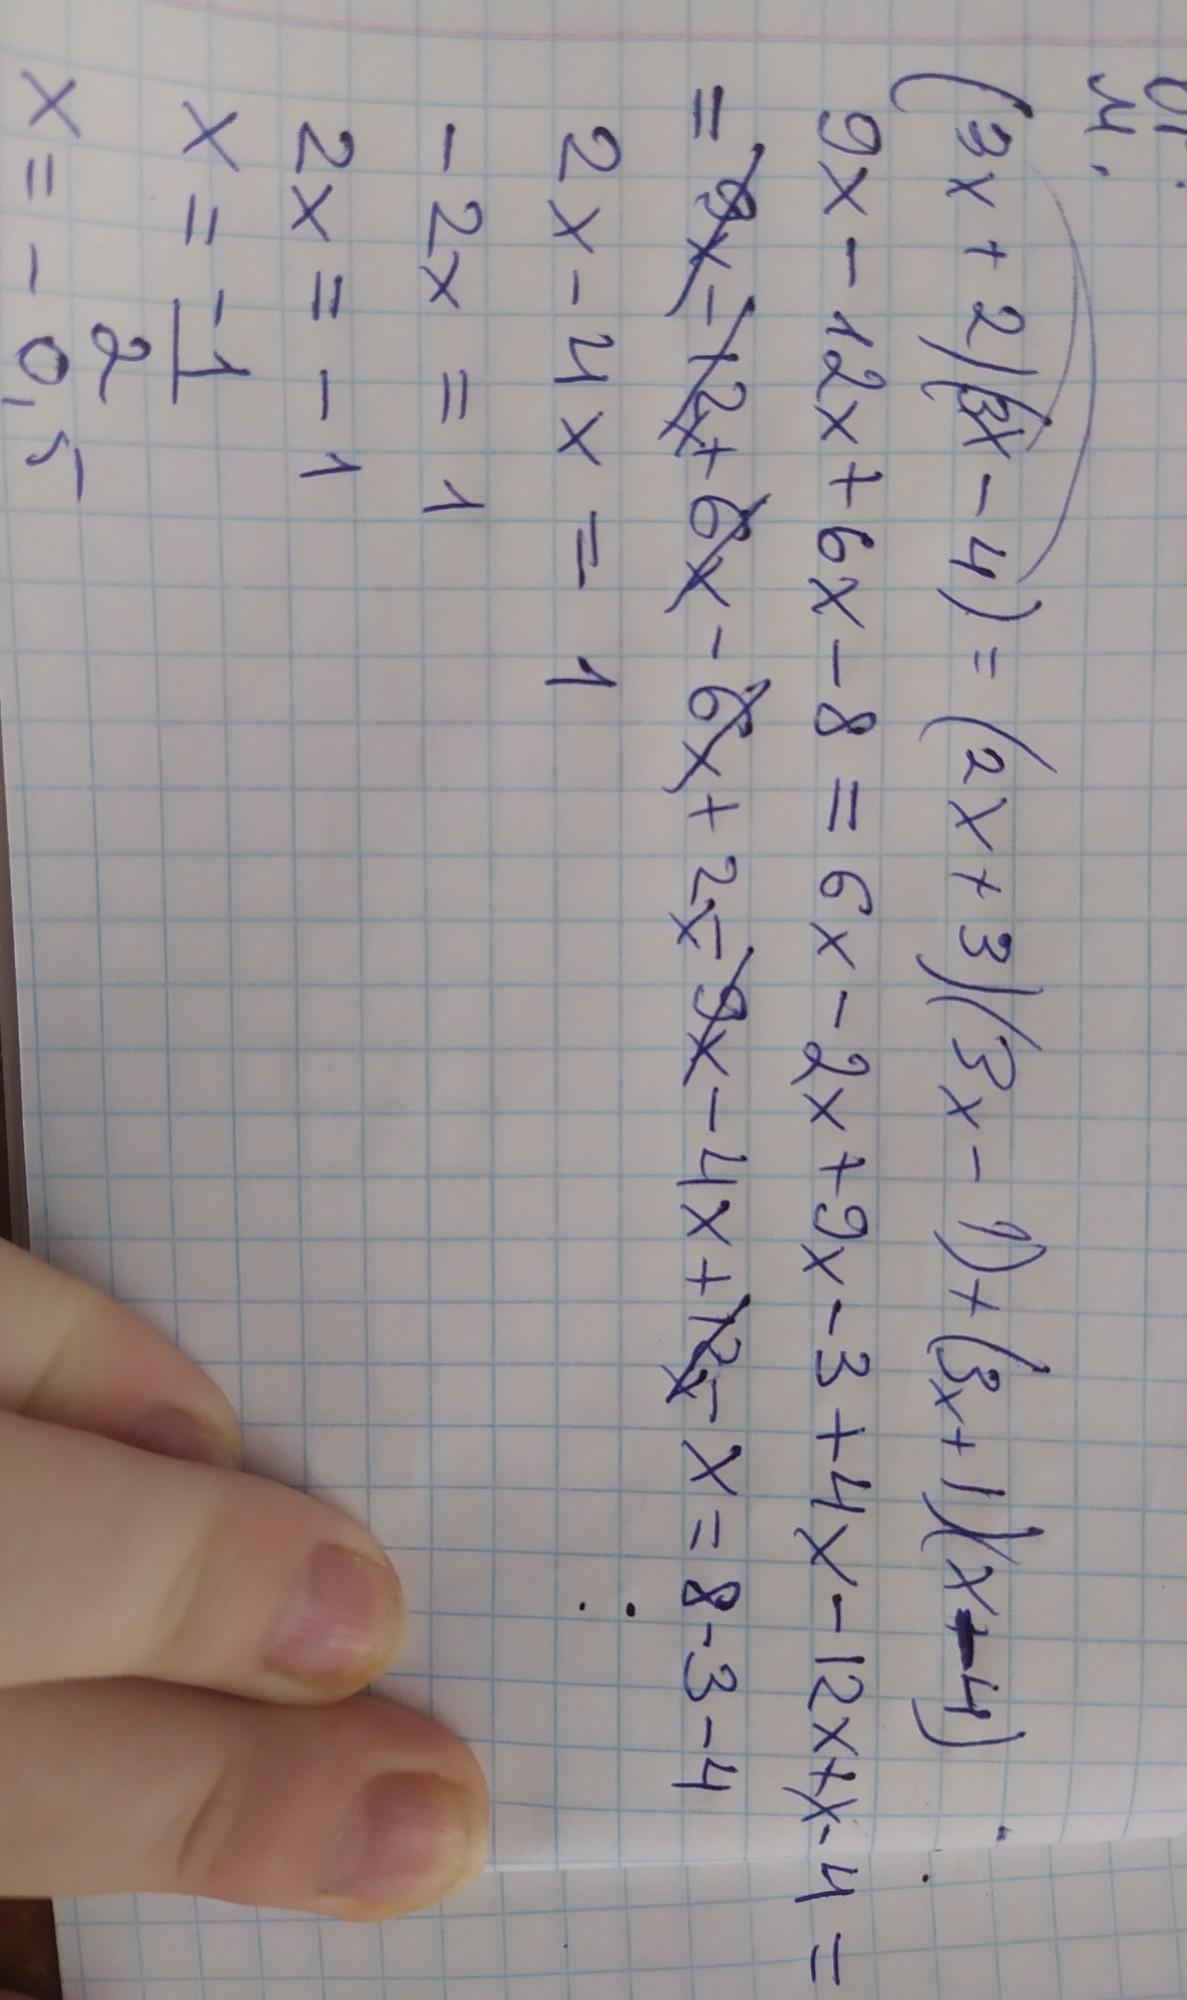 и.
(3x + 2)(3x - 4) = (2x + 3)(3x - 1) + (3x + 1)(x - 4)
9x - 12x + 6x - 8 = 6x - 2x + 9x - 3 + 4x - 12x + x - 4 =
= 9x - 12x + 6x - 6x + 2x - 9x - 4x + 12x - x = 8 - 3 - 4
2x - 4x = 1
- 2x = 1
2x = - 1
x = -1/2
x = - 0,5